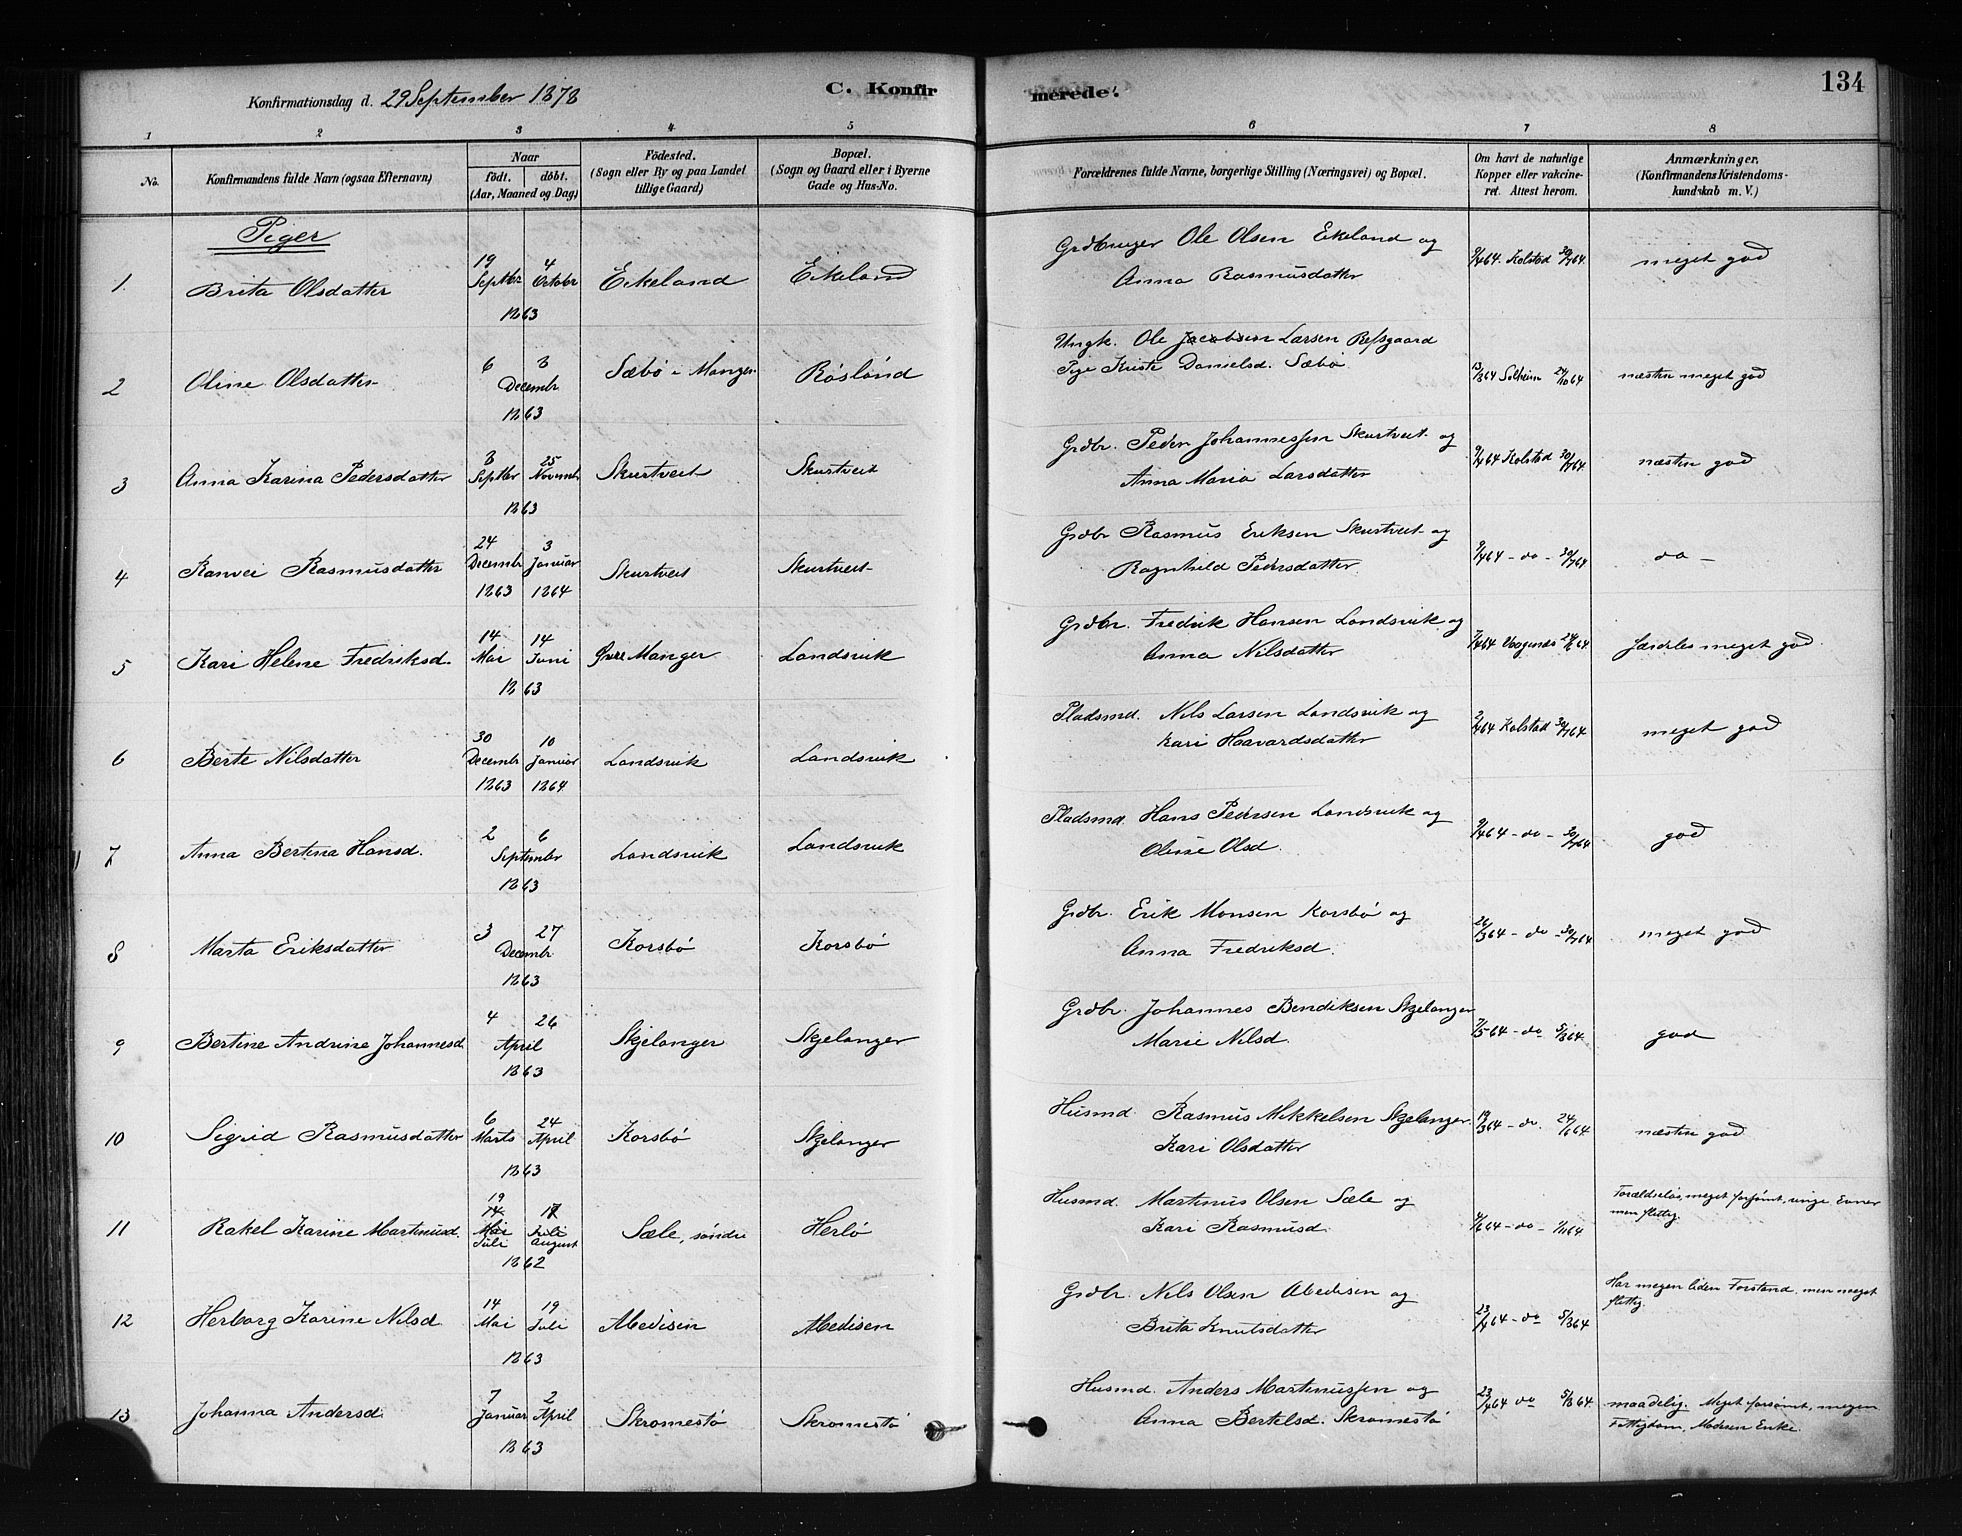 Konfirmationsdag d. 29 September 1878 C. Konfirmerede. 134
1 2 3 4 5 6 7 8
No. Konfirmandens fulde Navn (ogsaa Efternavn)
Naar
født. døbt.
(Aar, Maaned og Dag)
Födested.
(Sogn eller By og paa Landet
tillige Gaard)
Bopæl.
(Sogn og Gaard eller i Byerne
Gade og Hus-No.
Forældrenes fulde Navne, borgerlige Stilling (Næringsvei) og Bopæl.
Om havt de naturlige
Kopper eller vakcine-
ret. Attest herom.
Anmærkninger.
(Konfirmandens Kristendoms-
kundskab m. V.)
Piger
1. Brita Olsdatter 19 Septbr 4 Octobr 1863 Eikeland Eikeland
Grdbruger Ole Olsen Eikeland og
Anna Rasmusdatter
9/4 64. Kolstad 30/7 64. meget god
2 Oline Olsdatter 6 8 Decembr 1863 Sæbø i Manger Røsland
Ungk. Ole Jacobsen Larsen Refsgaard
Pige Kristi Danielsd. Sæbø
13/3 64 Solheim 24/10 64 næsten meget god
3 Anna Karina Pedersdatter 8 Septbr 25 Novembr 1863 Skurtveit Skurtveit
Grdbr. Peder Johannessen Skurtveit og
Anna Maria Larsdatter
9/4 64 Kolstad 30/7 64. næsten god
4 Ranvei Rasmusdatter 24 Decembr 1863 3 Januar 1864 Skurtveit Skurtveit
Grdbr Rasmus Eriksen Skurtveit og
Ragnhild Pedersdatter
9/4 64 - do - 30/7 64 do -
5 Kari Helene Fredriksd. 14 Mai 14 Juni 1863 Øvre Manger Landsvik
Grdbr. Fredrik Hansen Landsvik og
Anna Nilsdatter
7/4 64 Vaagenes 24/6 64 særdeles meget god
6 Berte Nilsdatter 30 Decembr 1863 10 Januar 1864 Landsvik Landsvik
Pladsmd. Nils Larsen Landsvik og
Kari Haavardsdatter
2/4 64 Kolstad 30/7 64 meget god
7 Anna Bertina Hansd. 2 6 Septembr 1863 Landsvik Landsvik
Pladsmd. Hans Pedersen Landsvik og
Oline Olsd.
9/4 64 - do - 30/7 64 god
8 Marta Eriksdatter 3 27 Decembr 1863 Korsbø Korsbø
Grdbr. Erik Monsen Korsbø og
Anna Fredriksd.
26/3 64 - do - 30/7 64 meget god
9 Bertine Andrine Johannesd. 4 26 April 1863 Skjelanger Skjelanger
Grdbr. Johannes Bendiksen Skjelanger
Marie Nilsd.
7/5 64 - do 5/8 64 god
10 Sigrid Rasmusdatter 6 Marts 24 April 1863 Korsbø Skjelanger
Husmd. Rasmus Mikkelsen Skjelanger
Kari Olsdatter
19/3 64 - do. 24/6 64 næsten god
11 Rakel Karine Martinusd. 19 14 Mai Juli 17 Juli August 1862 Sæle, søndre Herlø
Husmd. Martinus Olsen Sæle og
Kari Rasmusd.
4/6 64 - do - 1/11 64
Forældreløs, meget forsømt, ringe Evner
men flittig.
12 Herborg Karine Nilsd. 14 Mai 19 Juli 1863 Abedisen Abedisen
Grdbr. Nils Olsen Abedisen og
Brita Knutsdatter
23/4 64 - do 5/8 64
Har megen liden Forstand, men meget
flittig.
13 Johanna Andersd. 7 Januar 2 April 1863 Skromestø Skromestø
Husmd. Anders Martinussen og
Anna Bertelsd. Skromestø
23/4 64 do 5/8 64
maadelig. Meget forsømt, megen
Fattigdom, Moderen Enke.